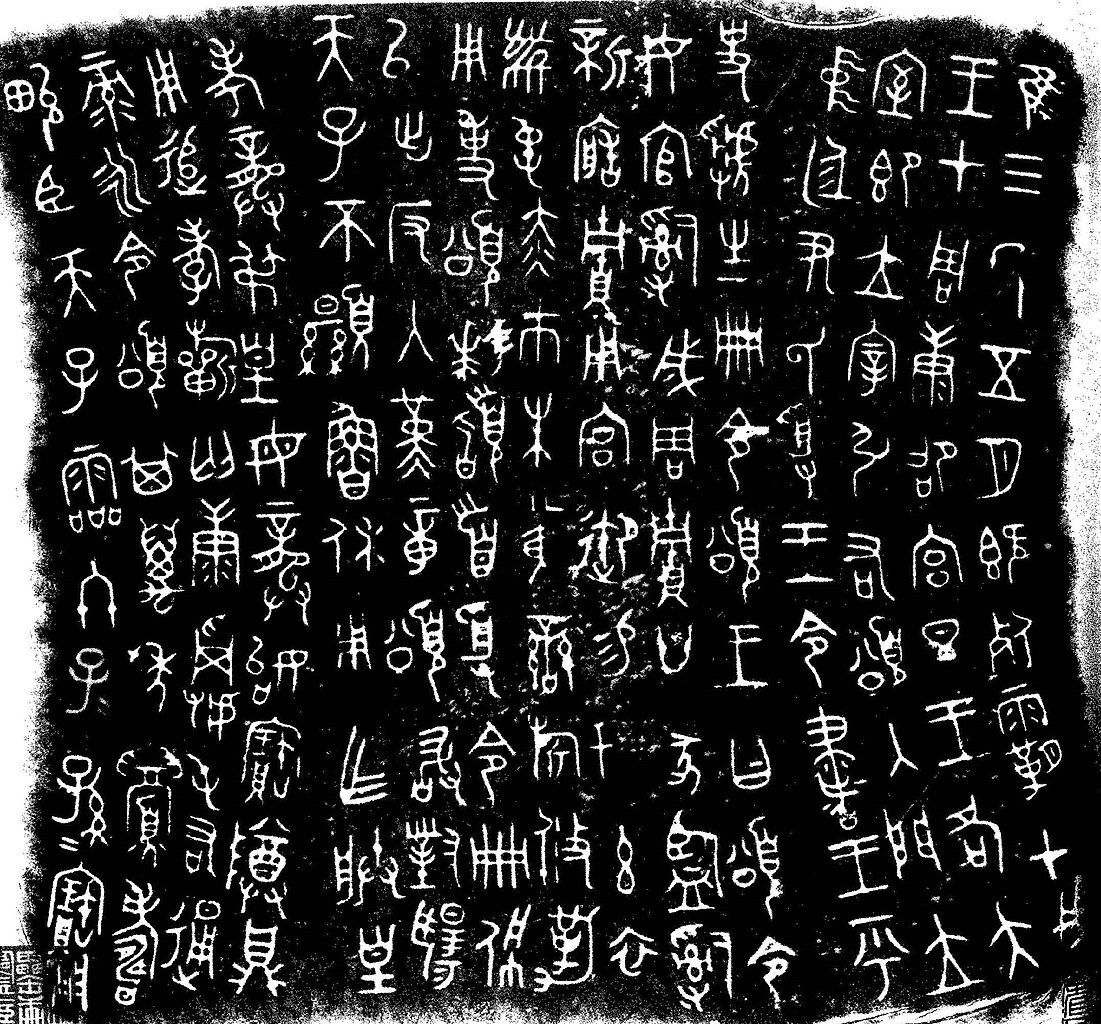 隹三年五月既死霸甲戌
王才周康卲宮旦王各大
室即立宰引右頌入門立
中廷尹氏受王令書王乎
史虢生冊令頌王曰頌令
女官𤔲成周貯廿家監𤔲
新造貯用宮御易女玄衣
黹屯赤巿朱黃䜌旂攸勒
用事頌拜稽首受令冊佩
以出反入堇章頌敢對揚
天子不顯魯休用乍朕皇
考龏叔皇母龏始寶尊鼎
用追孝祈匄康𩁹屯右通
彔永令頌其萬年眉壽
畯臣天子霝冬子孫寶用